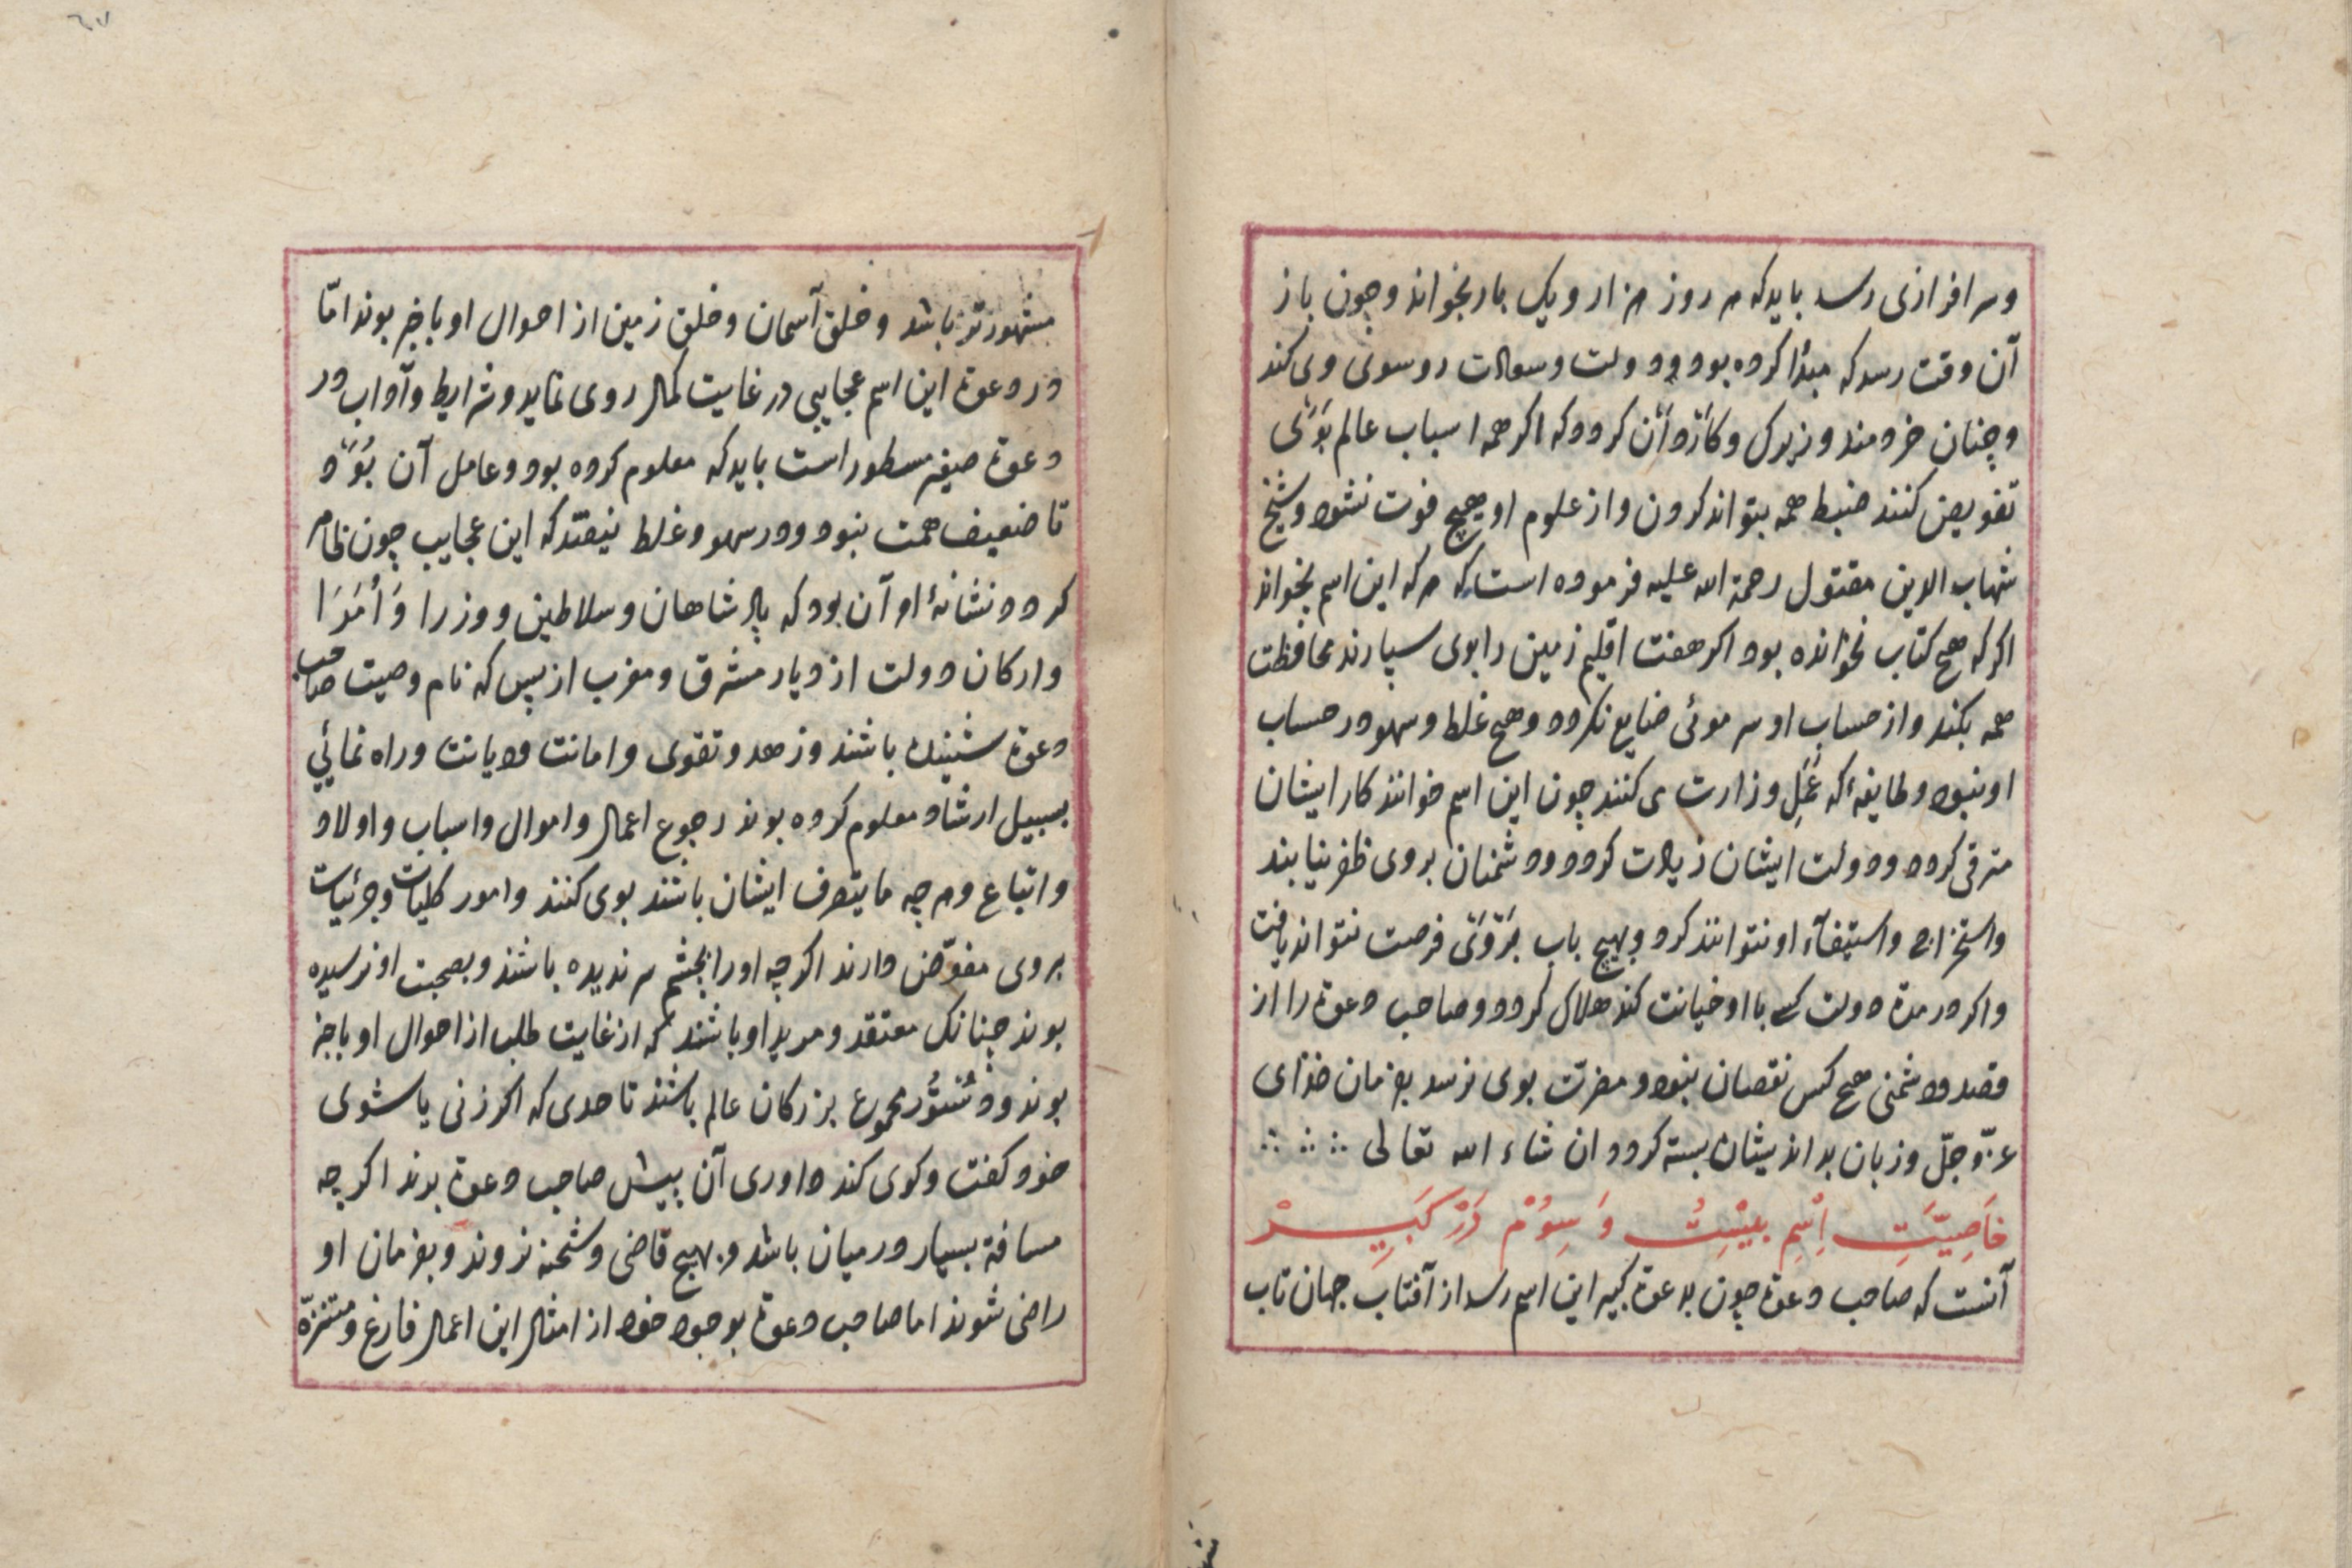 وسرافرازی رسد بایدکه هر روز هزار ویک بار بخواند وچون باز
آن وقت رسدکه مبدٔا کرده بود ودولت وسعادت روسوی وی کند
وچنان خردمند وزیرک وکاردان کرددکه اکر همه اسباب عالم بوی
تفویض کنند ضبط همه بتواند کردن واز علوم او هیچ فوت نشود وشیخ
شهاب الدین مقتول رحمة الله علیه فرموده است که هرکه این اسم بخواند
اکرکه هیچ کتاب نخوانده بود اکر هفت اقلیم زمین را بوی سپارند محافظت
همه بکند واز حساب او سر موئی ضایع نکردد وهیچ غلط وسهو در حساب
او نبود وطایفهٔ که عَمَلِ وزارت می کنند چون این اسم خوانند کار ایشان
مترقی کردد ودولت ایشان زیادت کردد ودشمنان بروی ظفر نیابند
واستخراج واستیفآء او نتوانند کرد وبهیچ باب بَرْوَیْ فرصت نتواند یافت
واکر در مدة دولت کسی با او خیانت کند هلاک کردد وصاحب دعوة را از
قصد ودشمنی هیچ کس نقصان نبود ومضرّت بوی نرسد بفرمان خدای
عزّ وجلّ وزبان بداندیشان بسته کردد ان شاء الله تعالی
خَاصِیَّتِ اِسْمِ بیسْتُ وَسِوُمْ دَرْ کَبِیرْ
آنست که صاحب دعوة چون بدعوة کبیر این اسم رسد از آفتاب جهان تاب
مشهورتر باشد وخلق آسمان وخلق زمین از احوال او باخبر بوند امّا
در دعوة این اسم عجایبی در غایت کمال روی نماید وشرایط وآداب در
دعوة صغیر مسطور است بایدکه معلوم کرده بود وعامل آن بُوَد
تا ضعیف همت نبود ودر سهو وغلط نیفتد که این عجایب چون ظاهر
کردد ونشانهٔ او آن بود که پادشاهان وسلاطین ووزرا وَاُمَرَا
وارکان دولت از دیار مشرق ومغرب از بس که نام وصیت صاحب
دعوة شنیده باشند وزهد وتقوی وامانت ودیانت وراه نمائی
بسبیل ارشاد معلوم کرده بوند رجوع اعمال واموال واسباب واولاد
واتباع وهرچه مایتصرف ایشان باشند بوی کنند وامور کلیات وجزئیات
بروی مفوّض دارند اکرچه اورا بچشم سر ندیده باشند وبصحبت او نرسیده
بوند چنانک معتقد ومرید او باشند که از غایت طلب از احوال او باخبر
بوند ودستُور مجموع بزرکان عالم باشند تا حدی که اکر زنی با شوی
خود کفت وکوی کند داوری آن پیش صاحب دعوة برند اکرچه
مسافة بسیار در میان باشد وبهیچ قاضی وشحنه نروند وبفرمان او
راضی شوند اما صاحب دعوة بوجود خود از امثال این اعمال فارغ ومتنزّه